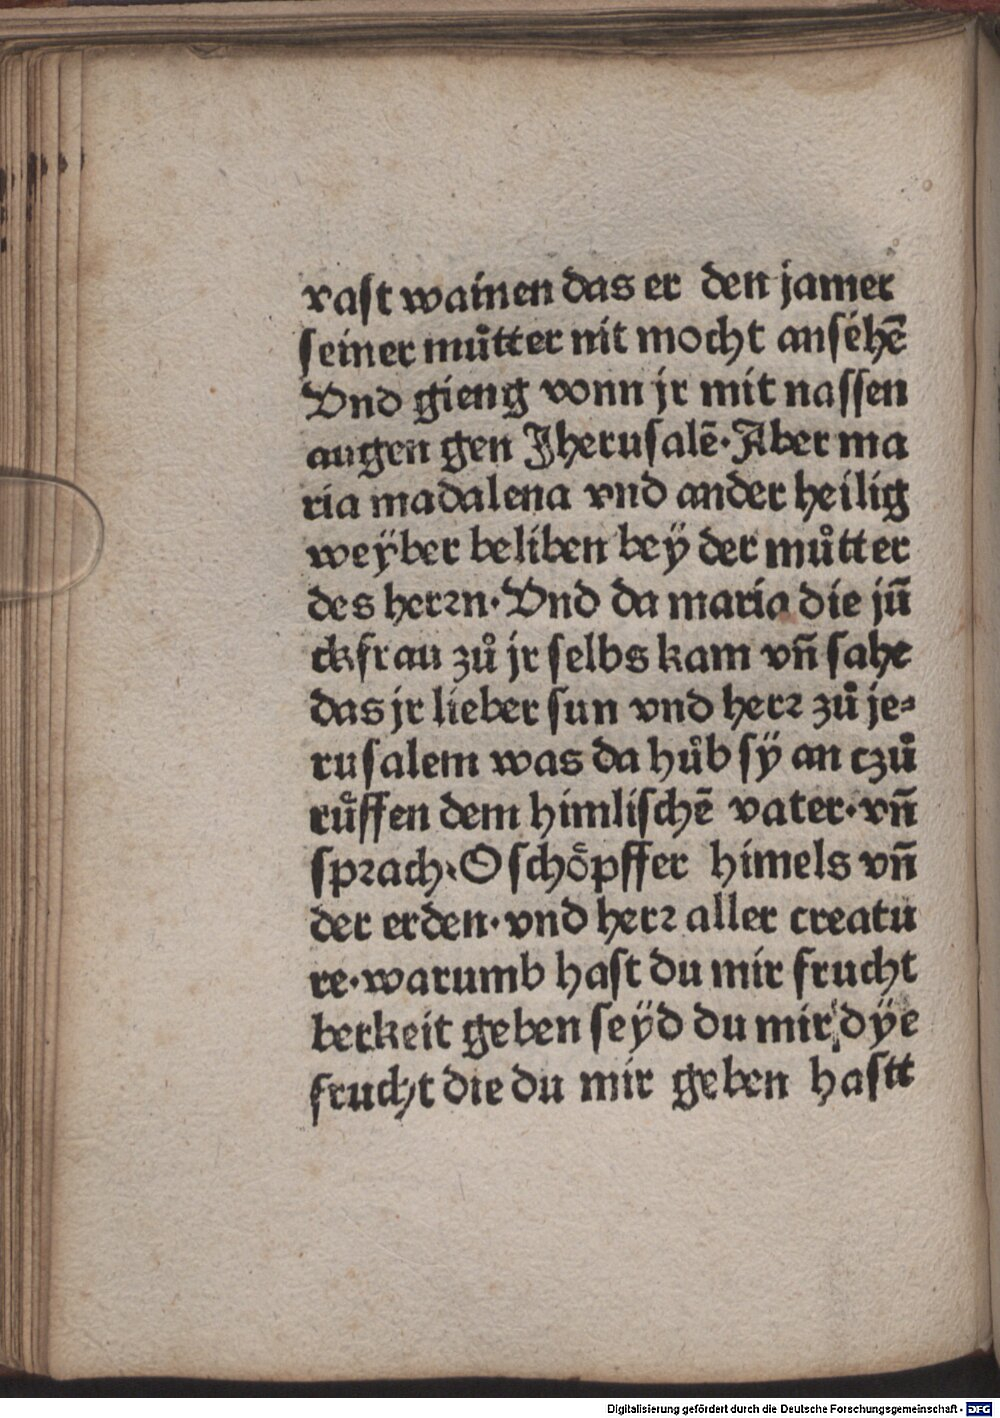 vast wainen das er den jamer
seiner muͤtter nit mocht anſehē
Vnd gieng vonn jr mit naſſen
augen gen Jheruſalē. Aber ma
ria madalena vnd ander heilig
weÿber beliben beÿ der muͦtter
des herꝛn. Vnd da maria die jū
ckfrau zuͦ jr ſelbs kam vn̄ ſahe
das jr lieber ſun vnd herꝛ zuͦ je⸗
ruſalem was da huͦb ſÿ an czuͦ
ruͤffen dem himliſchē vater. vn̄
ſpꝛach. O ſchoͤpffer himels vn̄
der erden. vnd herꝛ aller creatu
re. warumb haſt du mir frucht
berkeit geben ſeÿd du mir dÿe
frucht die du mir geben haſtt
Digitalisierung gefördert durch die Deutsche Forschungsgemeinschaft - DFG